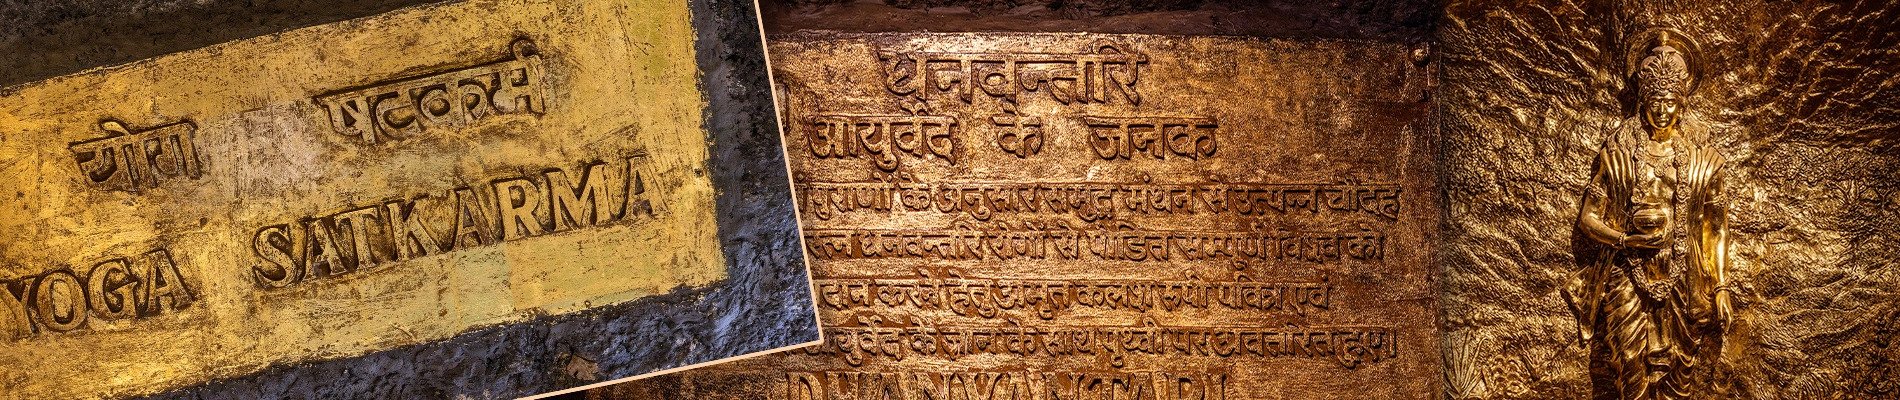 योग षटकर्म
YOGA SATKARMA
धनवन्तरि
आयुर्वेद के जनक
पुराणों के अनुसार समुद्र मंथन से उत्पन्न चौदह
रत्न धनवन्तरि रोगों से पीडित सम्पूर्ण विश्व को
करने हेतु अमृत कलश रूपी पवित्र एवं
आयुर्वेद के ज्ञान के साथ पृथ्वी पर अवतरित हुए।
DHANVANTARI